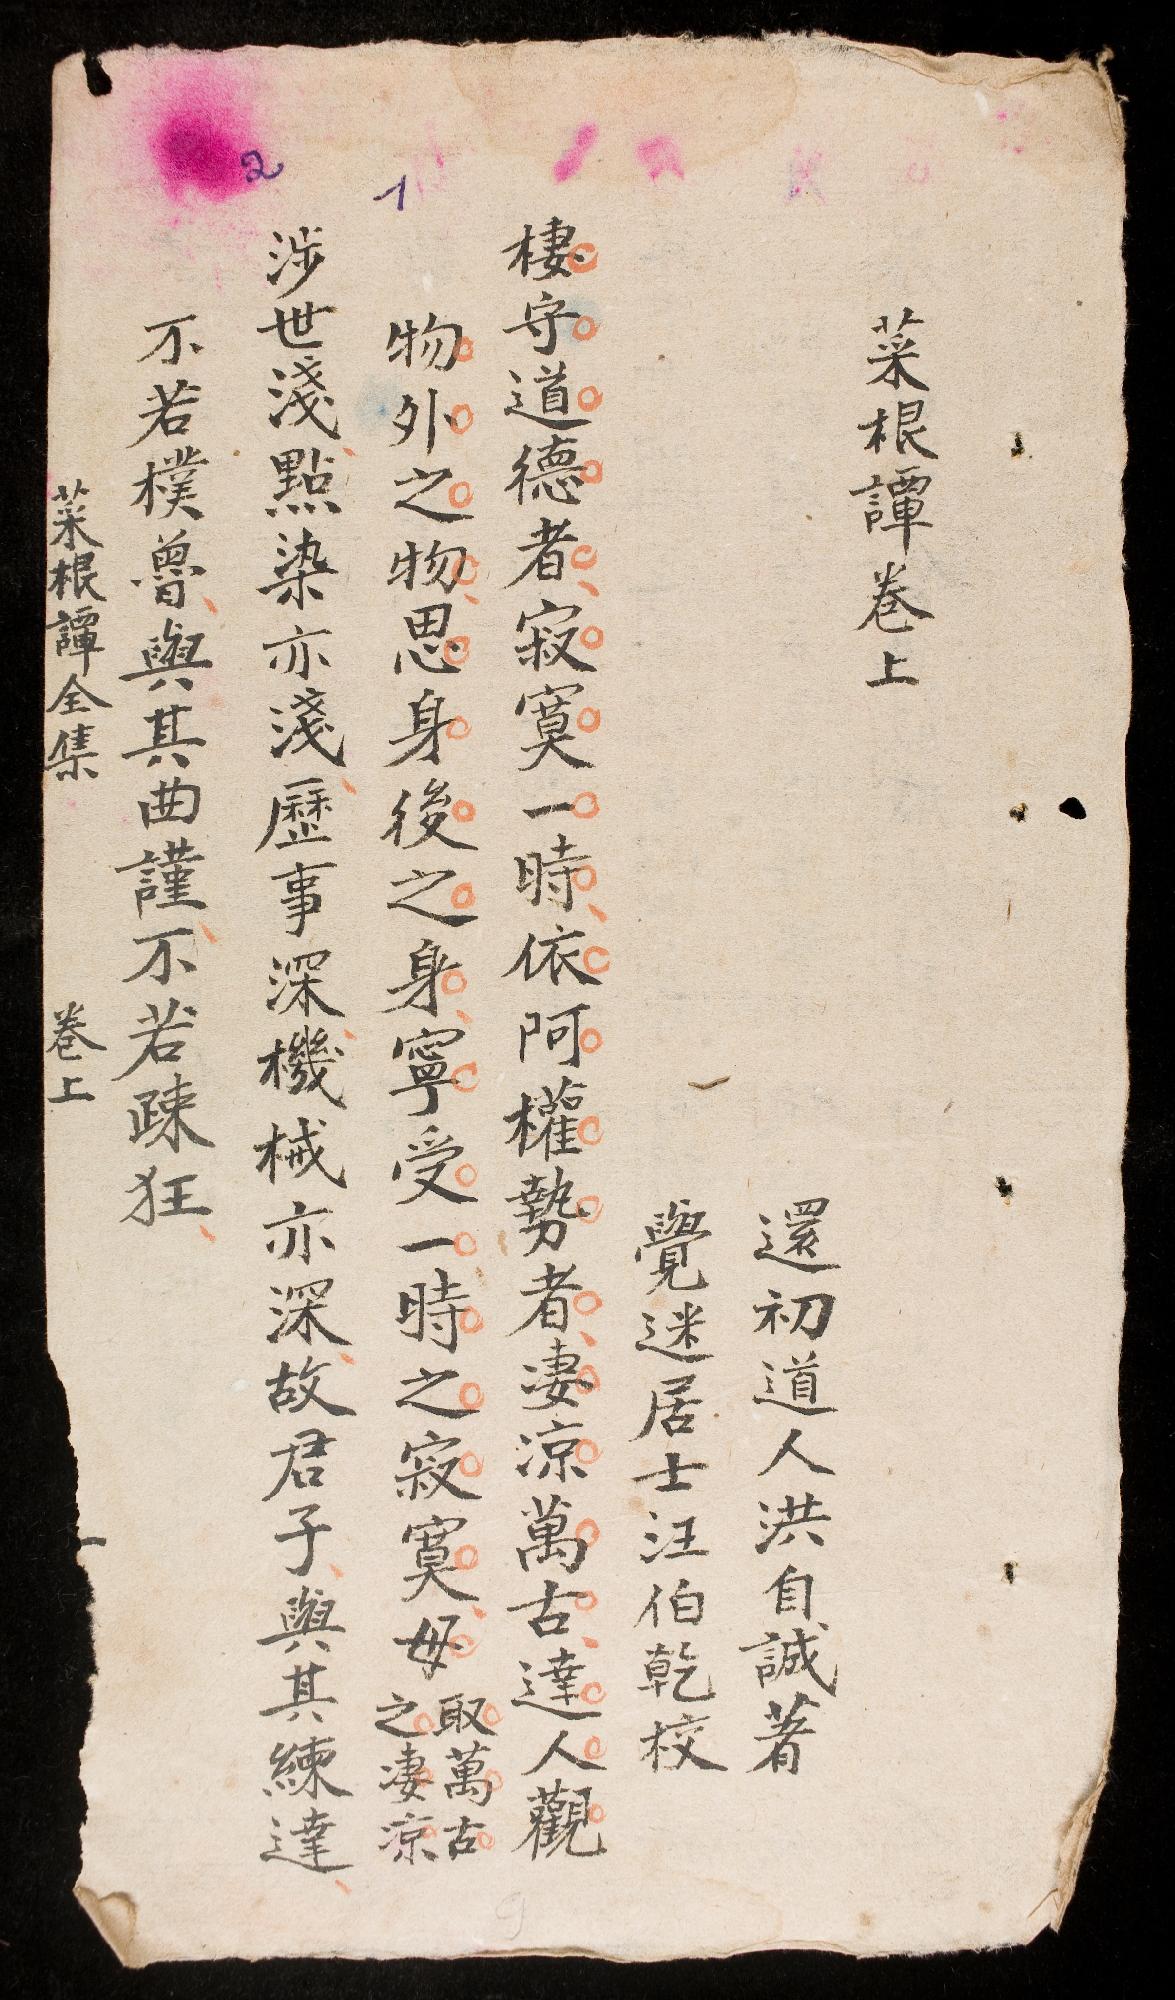 菜根譚卷上
還初道人洪自誠著
覺迷居士汪伯乾校
棲守道德者寂寞一時依阿權勢者淒涼萬古達人觀
物外之物思身後之身寧受一時之寂寞毋取萬古之淒涼
涉世淺點染亦淺歷事深機械亦深故君子與其練達
不若樸魯與其曲謹不若踈狂
菜根譚全集 卷上 一
1
2
9